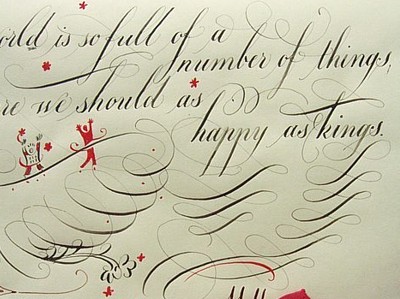 orld is so full of a
number of things,
re we should as
happy as kings.